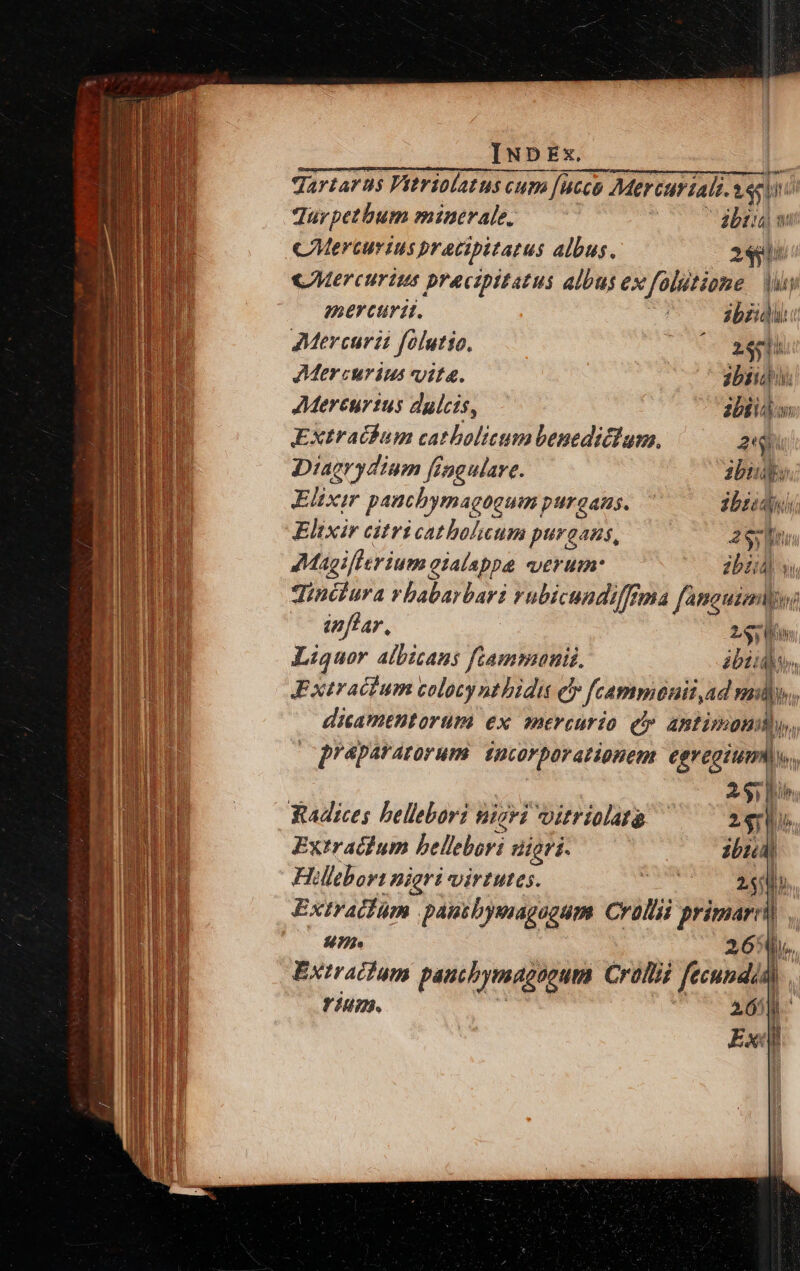 INDEX.
Tartarus Vitriolatus cum ſucco Mercuriali.
Turpethum minerale. ibid
Mercurius præcipitatus albus.
Mercurius præcipitatus albus ex ſolutione
mercurii. ibid
Mercurii ſolutio.
Mercurius vitæ. ibid
Mercurius dulcis, ibid
Extractum catholicum benedictum.
Diagrydium ſingulare. ibid
Elixir panchymagogum purgans. ibid
Elixir citri catholicum purgans,
Magiſterium gialappæ verum ibid
Tinctura rhabarbari rubicundiſſima ſanguinis
inſtar,
Liquor albicans ſcammonii. ibid
Extractum colocynthidis & ſcammonii, ad
dicamentorum ex mercurio & antimonio
præparatorum incorporationem egregium
Radices hellebori nigri vitriolatæ
Extractum hellebori nigri. ibid
Hellebori nigri virtutes.
Extractum panchymagogum Crollii primari
um.
Extractum panchymagogum Crollii ſecunda
rium.
Ex